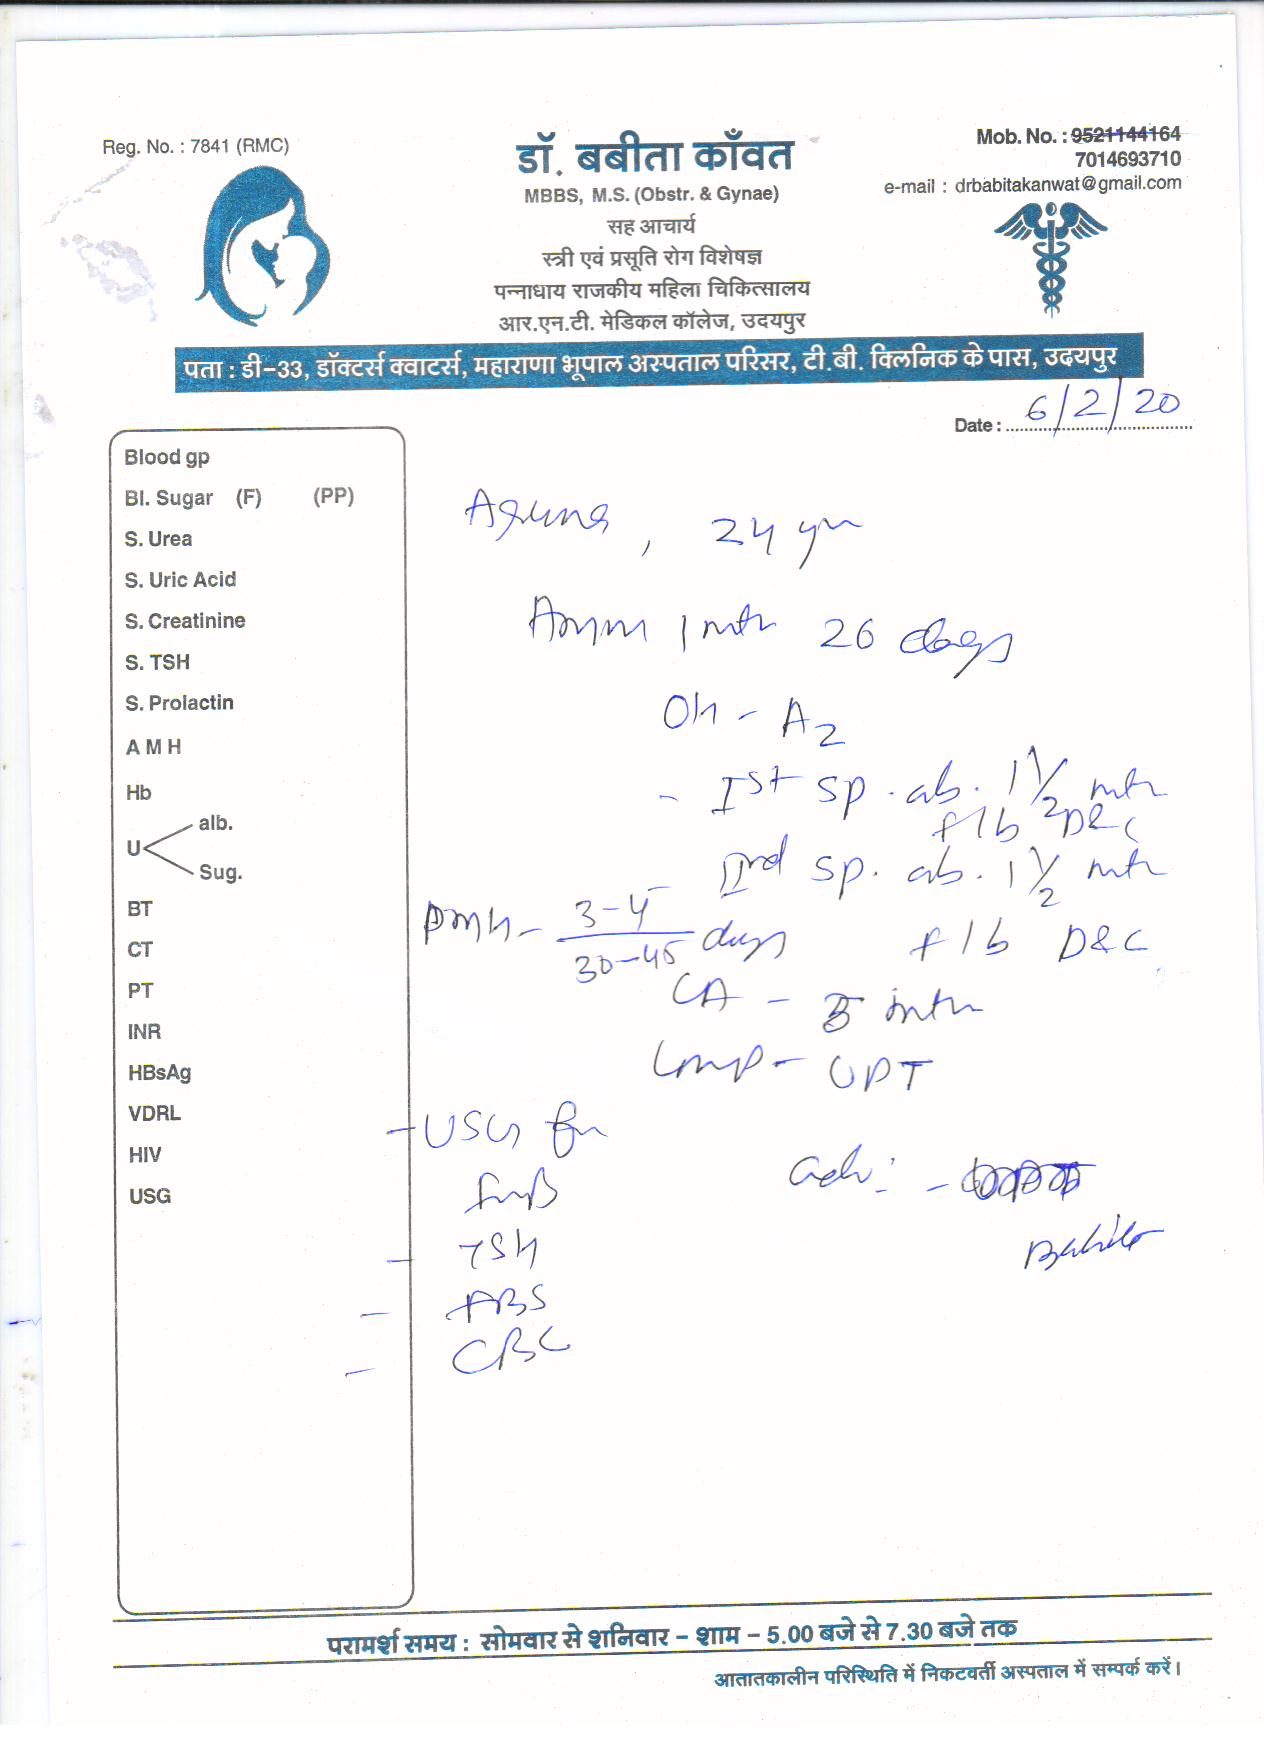 Reg. No. : 7841 (RMC)
डॉ. बबीता काँवत
MBBS, M.S. (Obstr. & Gynae)
सह आचार्य
स्त्री एवं प्रसूति रोग विशेषज्ञ
पन्नाधाय राजकीय महिला चिकित्सालय
आर.एन.टी. मेडिकल कॉलेज, उदयपुर
Mob. No. : 9521144164
7014693710
e-mail : drbabitakanwat@gmail.com
पता : डी-33, डॉक्टर्स क्वाटर्स, महाराणा भूपाल अस्पताल परिसर, टी.बी. क्लिनिक के पास, उदयपुर
Date : 6/2/20
Blood gp
Bl. Sugar (F) (PP)
S. Urea
S. Uric Acid
S. Creatinine
S. TSH
S. Prolactin
A M H
Hb
U alb.
Sug.
BT
CT
PT
INR
HBsAg
VDRL
HIV
USG
, 24 yrs
1 mth 26 days
OH - A2
- Ist sp. ab. 1 1/2 mth
f/b D&C
IInd sp. ab. 1 1/2 mth
f/b D&C
PMH - 3-4/30-45 days
CA - mth
LMP - UPT
Adv :-
- USG for
- TSH
- ABS
- CBC
परामर्श समय : सोमवार से शनिवार - शाम - 5.00 बजे से 7.30 बजे तक
आतातकालीन परिस्थिति में निकटवर्ती अस्पताल में सम्पर्क करें।